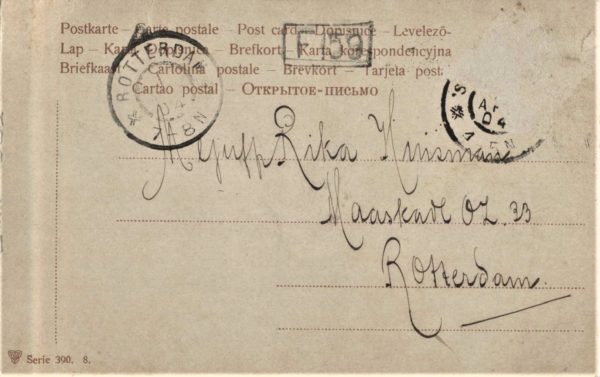 Postkarte – Carte postale – Post card – Dopisnice – Levelező-
Lap – Karta – Brefkort – Karta korespondencyjna
Briefkaart – Cartolina postale – Brevkort – Tarjeta post
Cartao postal – Открытое-письмо
F 59
ROTTERDAM
7-8N
04
Mejuffr Rika Huisman
Maaskade OZ. 33
Rotterdam.
Serie 390. 8.